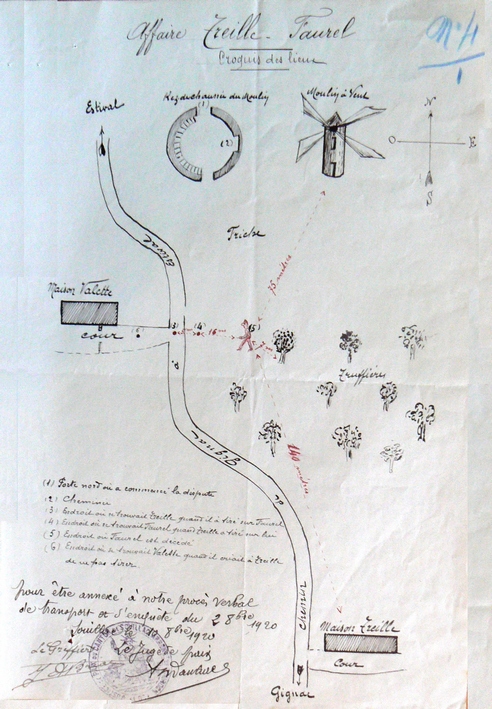 Affaire Treille - Taurel
Croquis des lieux
N° 4
1
Estival
Rez de chaussée du Moulin
(1)
(2)
Moulin à Vent
N
O
E
S
Friche
75 mètres
Estival
Maison Valette
cour
(6)
(3)
(4)
16 m
(5)
Truffières
à
Gignac
140 mètres
de
Chemin
Maison Treille
Cour
Gignac
(1) Porte nord où a commencé la dispute
(2) Cheminée
(3) Endroit où se trouvait Treille quand il a tiré sur Taurel
(4) Endroit où se trouvait Taurel quand Treille a tiré sur lui
(5) Endroit où Taurel est décédé
(6) Endroit où se trouvait Valette quand il criait à Treille
de ne pas tirer.
pour être annexé à notre procès verbal
de transport et d'enquête du 2 8bre 1920
Souillac 8bre 1920
Le Greffier
Le Juge de paix